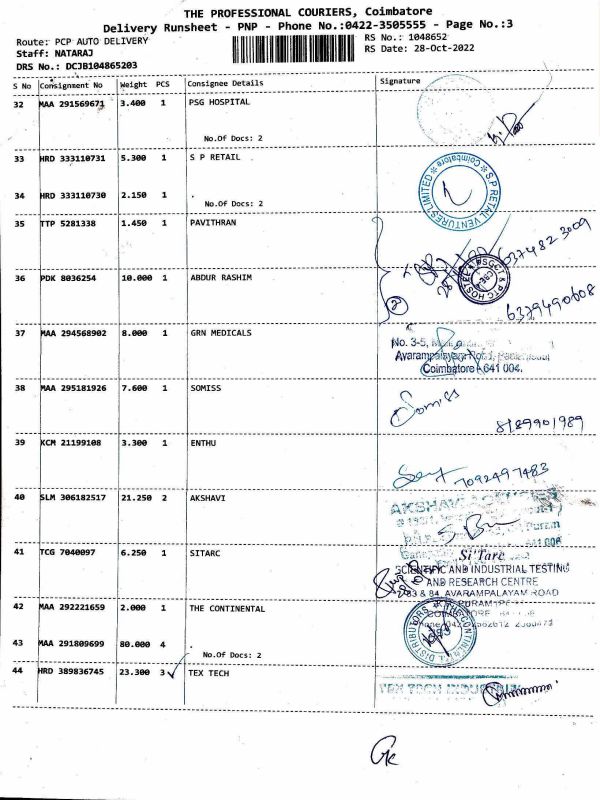 THE PROFESSIONAL COURIERS, Coimbatore
Delivery Runsheet - PNP - Phone No.:0422-3505555 - Page No.:3
Route: PCP AUTO DELIVERY
RS No.: 1048652
Staff: NATARAJ
RS Date: 28-Oct-2022
DRS No.: DCJB104865203
S No Consignment No Weight PCS Consignee Details Signature
32 MAA 291569671 3.400 1 PSG HOSPITAL
No.Of Docs: 2
33 HRD 333110731 5.300 1 S P RETAIL
34 HRD 333110730 2.150 1
No.Of Docs: 2
S.P RETAIL VENTURES LIMITED
Coimbatore
35 TTP 5281338 1.450 1 PAVITHRAN
6374823009
36 PDK 8036254 10.000 1 ABDUR RASHIM
2
6379490608
37 MAA 294568902 8.000 1 GRN MEDICALS
No. 3-5,
Avarampalayam
Coimbatore - 641 004.
38 MAA 295181926 7.600 1 SOMISS
Somiss
8189901989
39 KCM 21199108 3.300 1 ENTHU
7092497483
40 SLM 306182517 21.250 2 AKSHAVI
AKSHAVI
41 TCG 7040097 6.250 1 SITARC
Si'Tarc
SCIENTIFIC AND INDUSTRIAL TESTING
AND RESEARCH CENTRE
& 84, AVARAMPALAYAM ROAD
42 MAA 292221659 2.000 1 THE CONTINENTAL
43 MAA 291809699 80.000 4
No.Of Docs: 2
DISTRIBUTORS
44 HRD 389836745 23.300 3 TEX TECH
TEX TECH